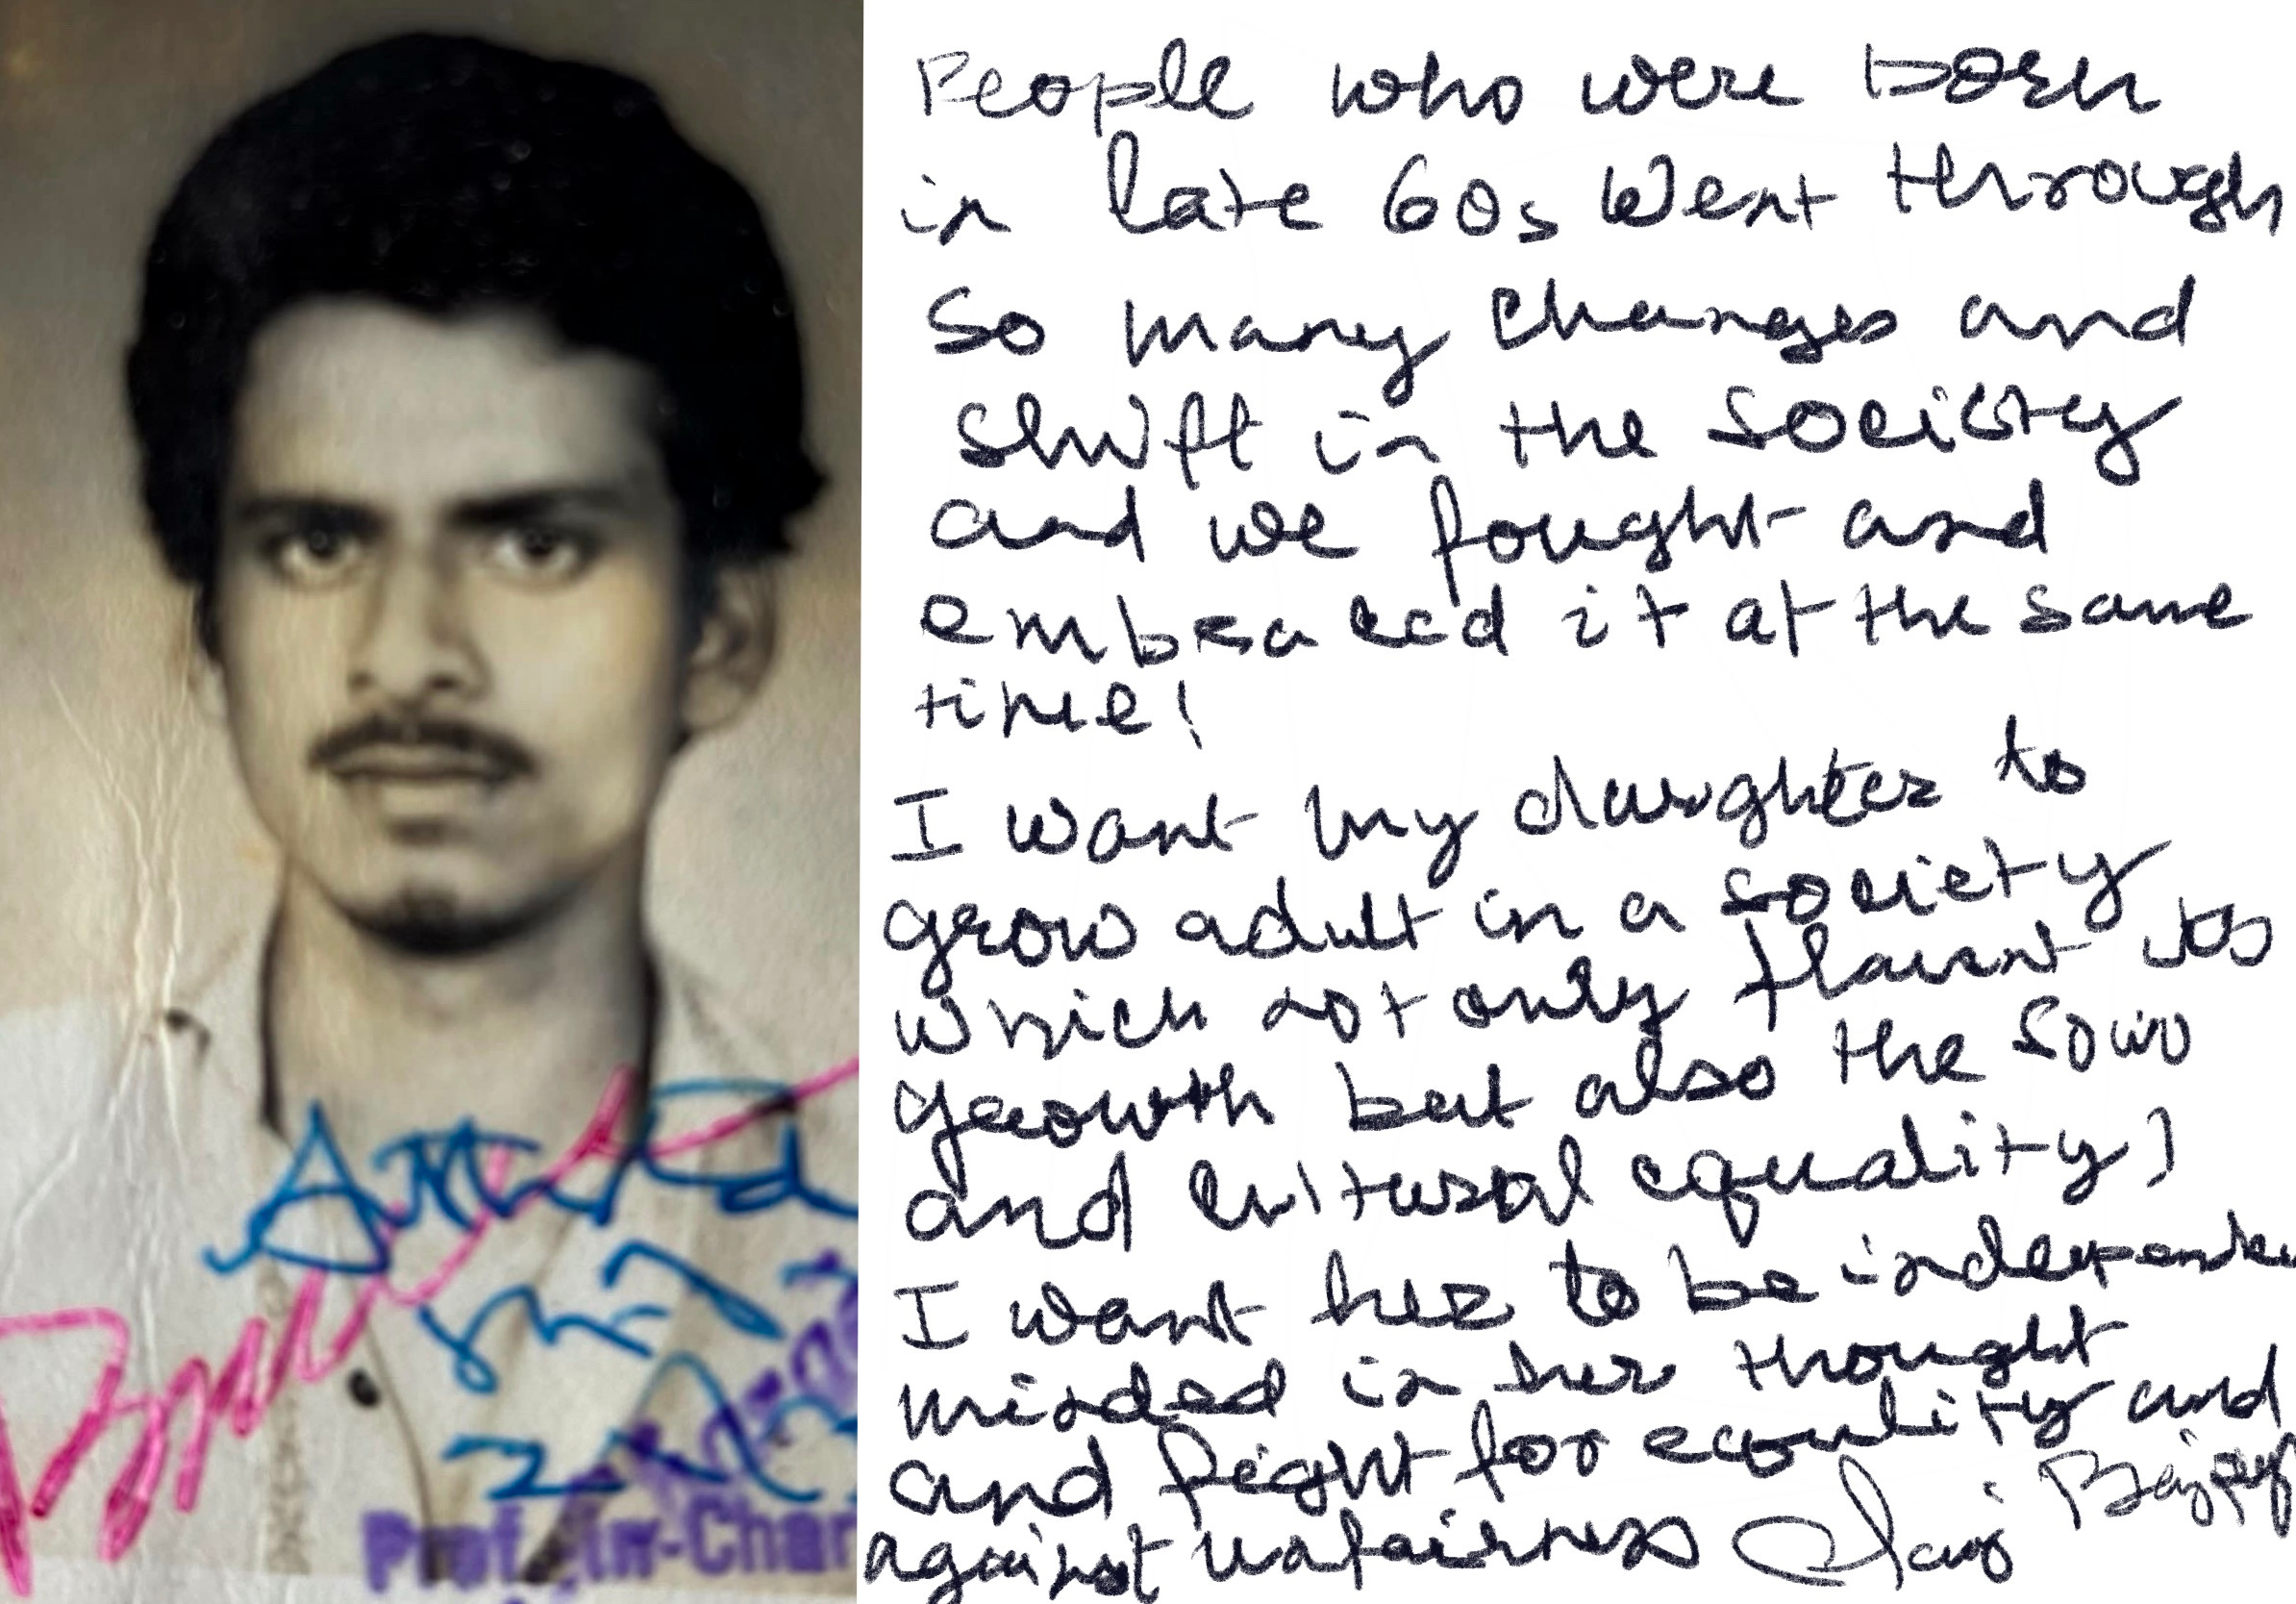 Attested
Prof.-in-Char
People who were born
in late 60s went through
so many changes and
shift in the society
and we fought and
embraced it at the same
time!
I want my daughter to
grow adult in a society
which not only flaunt its
growth but also the socio
and cultural equality,
I want her to be independen
minded in her thought
and fight for equality and
against unfairness
Bajpay